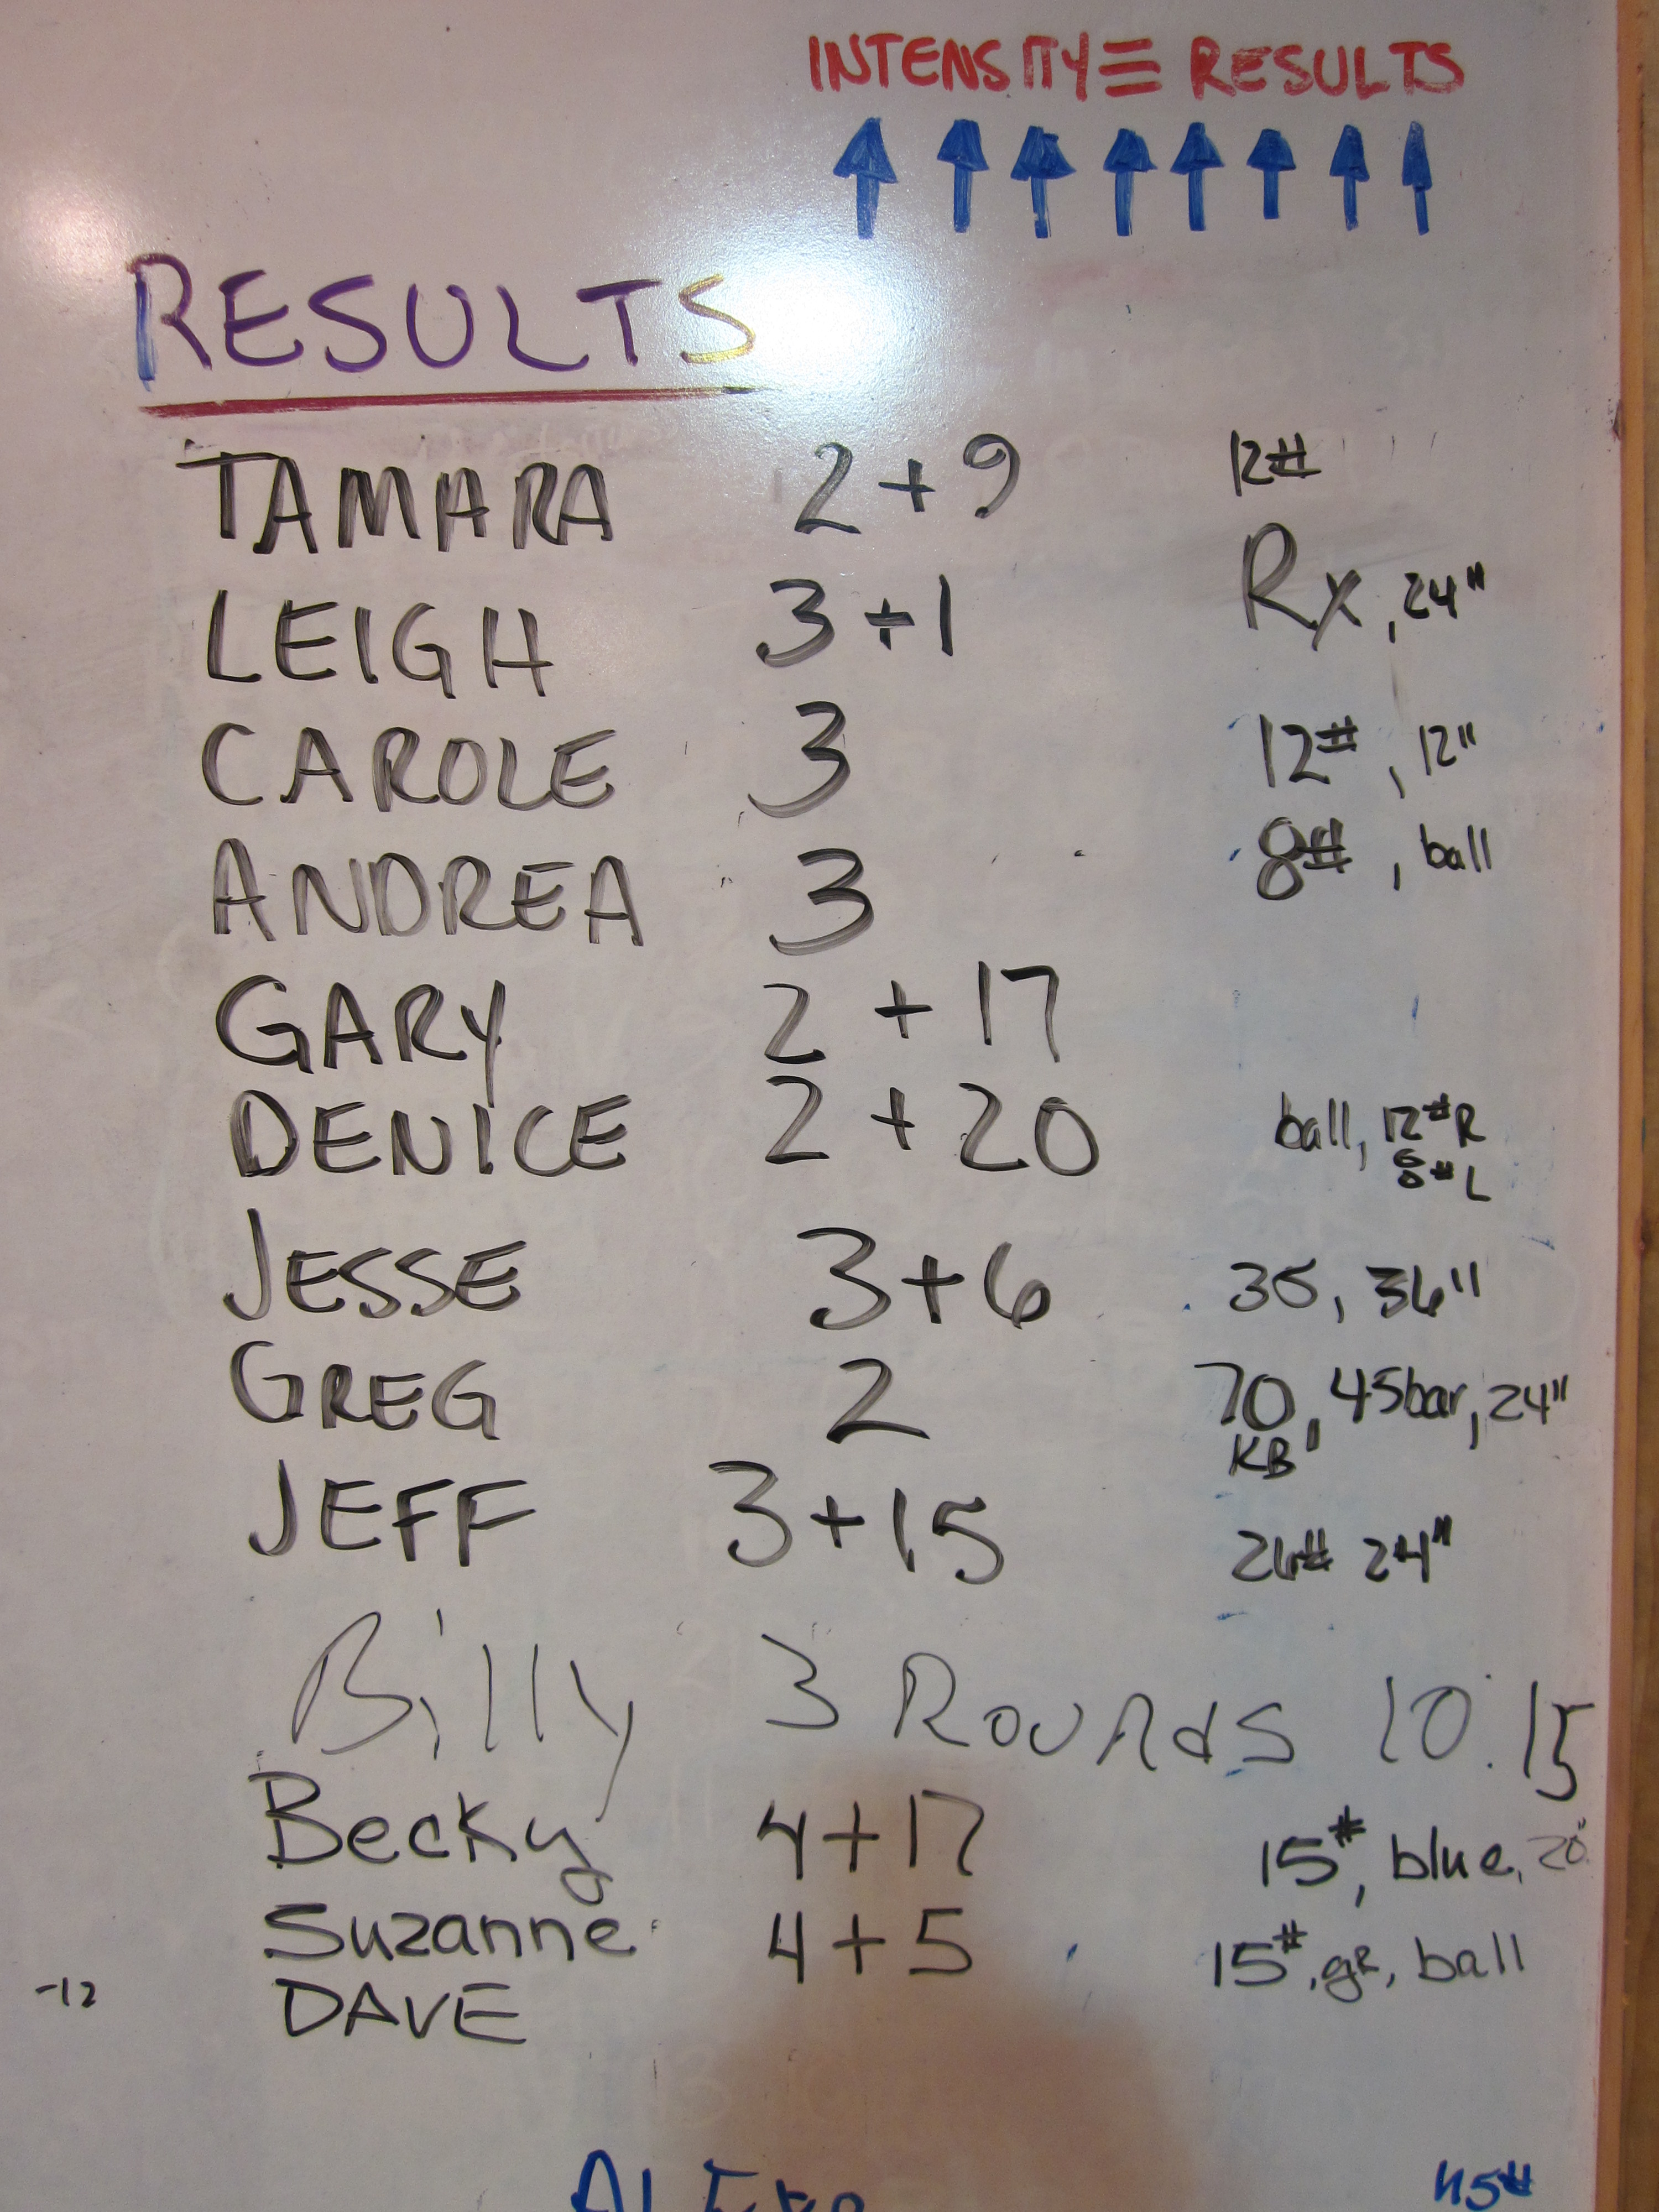 INTENSITY ≡ RESULTS
RESULTS
TAMARA 2 + 9 12#
LEIGH 3 + 1 Rx, 24"
CAROLE 3 12#, 12"
ANDREA 3 8#, ball
GARY 2 + 17
DENICE 2 + 20 ball, 12#R
8#L
JESSE 3 + 6 35, 36"
GREG 2 70, 45bar, 24"
KB
JEFF 3 + 15 26# 24"
Billy 3 Rounds 10:15
Becky 4 + 17 15#, blue, 20"
Suzanne 4 + 5 15#, gR, ball
-12 DAVE
45#